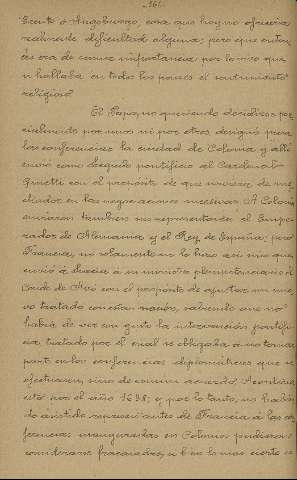 -161-
Trento ó Augsburgo, cosa que hoy no ofrecería
realmente dificultad alguna; pero que enton-
ces era de suma importancia por lo vivo que
se hallaba en todos los países el sentimiento
religioso.
El Papa, no queriendo decidirse por
por unos ni por otros designó para
las conferencias la ciudad de Colonia y allí
envió como legado pontificio al Cardenal
Ginetti con el propósito de que sirviese de me-
diador en las negociaciones sucesivas. A Colonia
enviaron tambien sus representantes el Empe-
rador de Alemania y el Rey de España; pero
Francia, no solamente no lo hizo así sino que
envió á Suecia á su ministro plenipotenciario el
Conde de Avó con el propósito de ajustar un nue-
vo tratado con esta nación, sabiendo que no
había de ver con gusto la intervención pontifi-
cia; tratado por el cual se obligaba á no tomar
parte en las conferencias diplomáticas que se
efectuaran, sino de comun acuerdo. Acontecía
esto por el año 1638; y por lo tanto, no habien-
do asistido representantes de Francia á las con-
ferencias inauguradas en Colonia pudieron
considerarse fracasadas, si bien lo mas cierto es